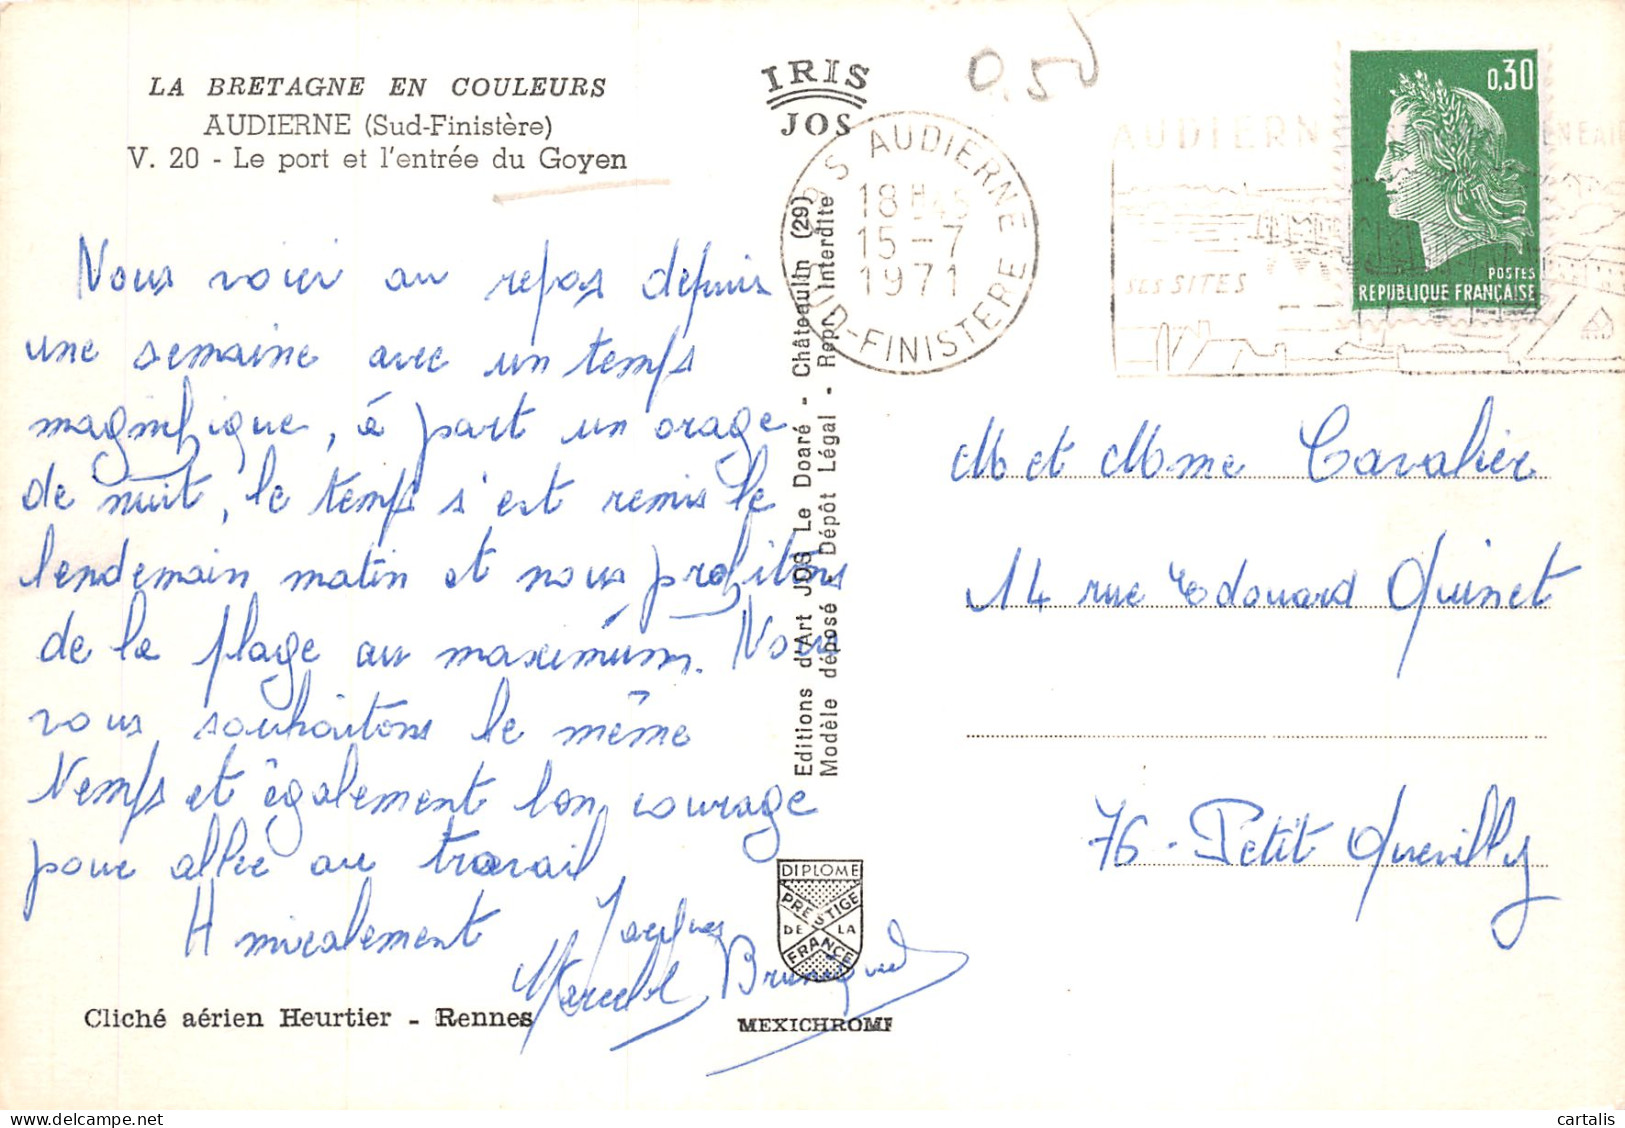 LA BRETAGNE EN COULEURS
AUDIERNE (Sud-Finistère)
V. 20 - Le port et l'entrée du Goyen
Nous voici au repos depuis
une semaine avec un temps
magnifique, à part un orage
de nuit, le temps s'est remis le
lendemain matin et nous profitons
de la plage au maximum. Nous
vous souhaitons le même
temps et également bon courage
pour aller au travail
Amicalement Jacques
Marcel Bruneau
Cliché aérien Heurtier - Rennes
IRIS
JOS
Editions d'Art JOS Le Doaré - Châteaulin (29)
Modèle déposé * Dépôt Légal - Repr. Interdite
DIPLOME
PRESTIGE
DE LA
FRANCE
MEXICHROME
0.50
29 S AUDIERNE
18 H 45
15 - 7
1971
SUD-FINISTERE
AUDIERNE
SES SITES
0,30
POSTES
REPUBLIQUE FRANÇAISE
M et Mme Cavalier
14 rue Edouard Quinet
76 - Petit Quevilly
cartalis